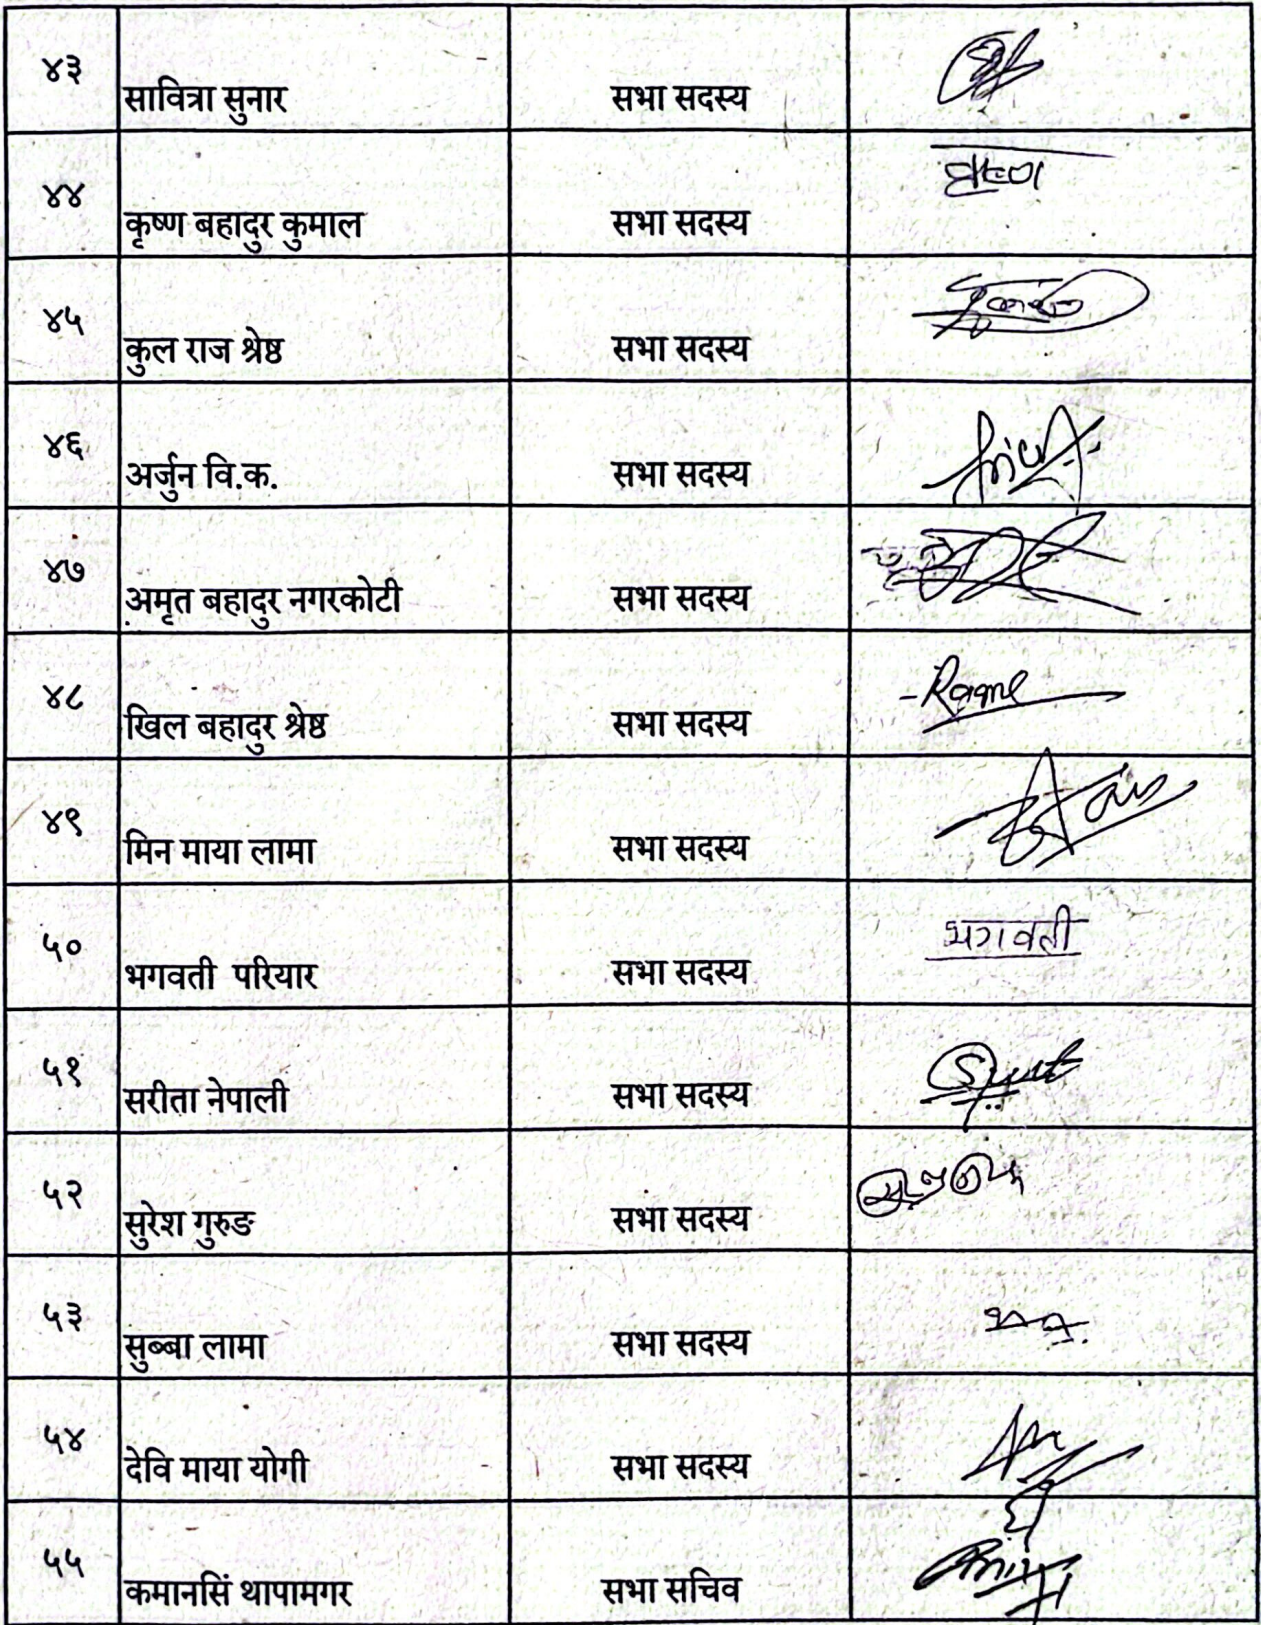 ४३ सावित्रा सुनार सभा सदस्य
४४ कृष्ण बहादुर कुमाल सभा सदस्य
४५ कुल राज श्रेष्ठ सभा सदस्य
४६ अर्जुन वि.क. सभा सदस्य
४७ अमृत बहादुर नगरकोटी सभा सदस्य
४८ खिल बहादुर श्रेष्ठ सभा सदस्य
४९ मिन माया लामा सभा सदस्य
५० भगवती परियार सभा सदस्य भगवती
५१ सरीता नेपाली सभा सदस्य
५२ सुरेश गुरुङ सभा सदस्य
५३ सुब्बा लामा सभा सदस्य
५४ देवि माया योगी सभा सदस्य
५५ कमानसिं थापामगर सभा सचिव